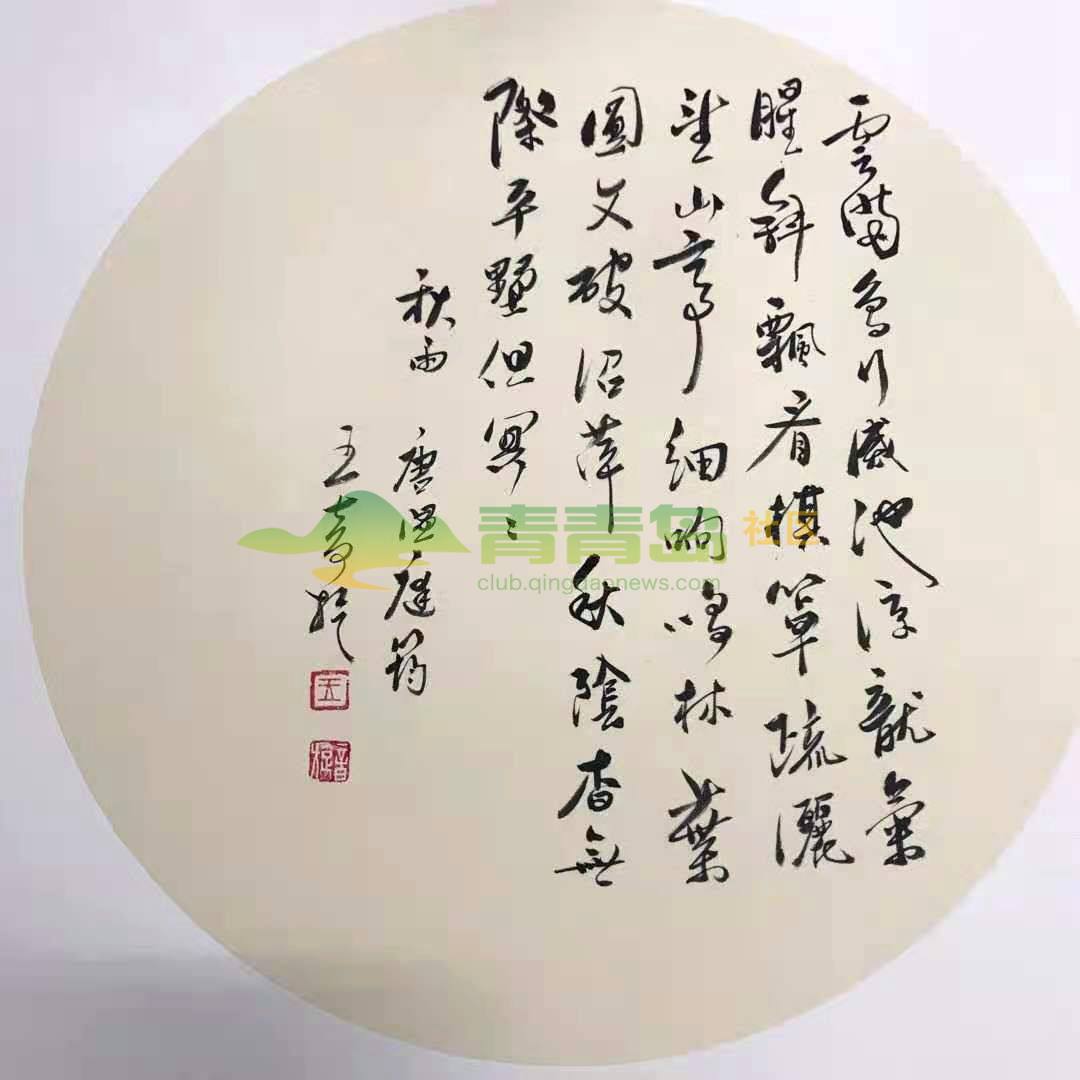 雲滿鳥行滅池涼龍氣
腥斜飄看棋簟疏灑
望山亭細响鳴林葉
圓文破沼萍秋陰杳無
際平墅但冥〻
秋雨 唐溫庭筠
王
青青岛社区
club.qingdaonews.com